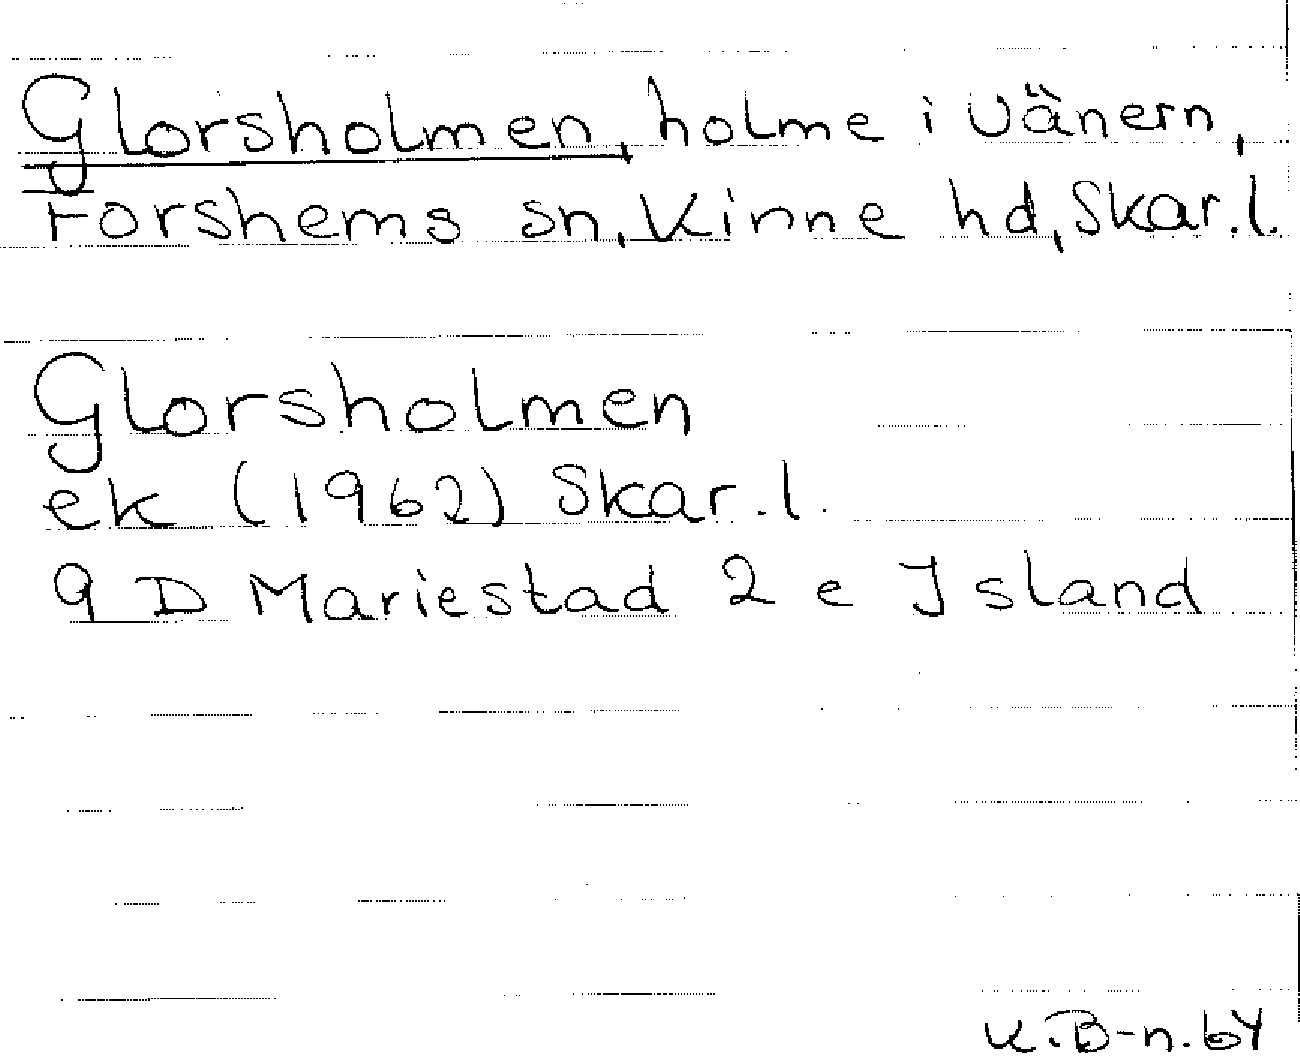 Glorsholmen, holme i Vänern,
Forshems sn, Kinne hd, Skar.l.
Glorsholmen
ek (1962) Skar.l.
9 D Mariestad 2 e Island
K.B-n.64